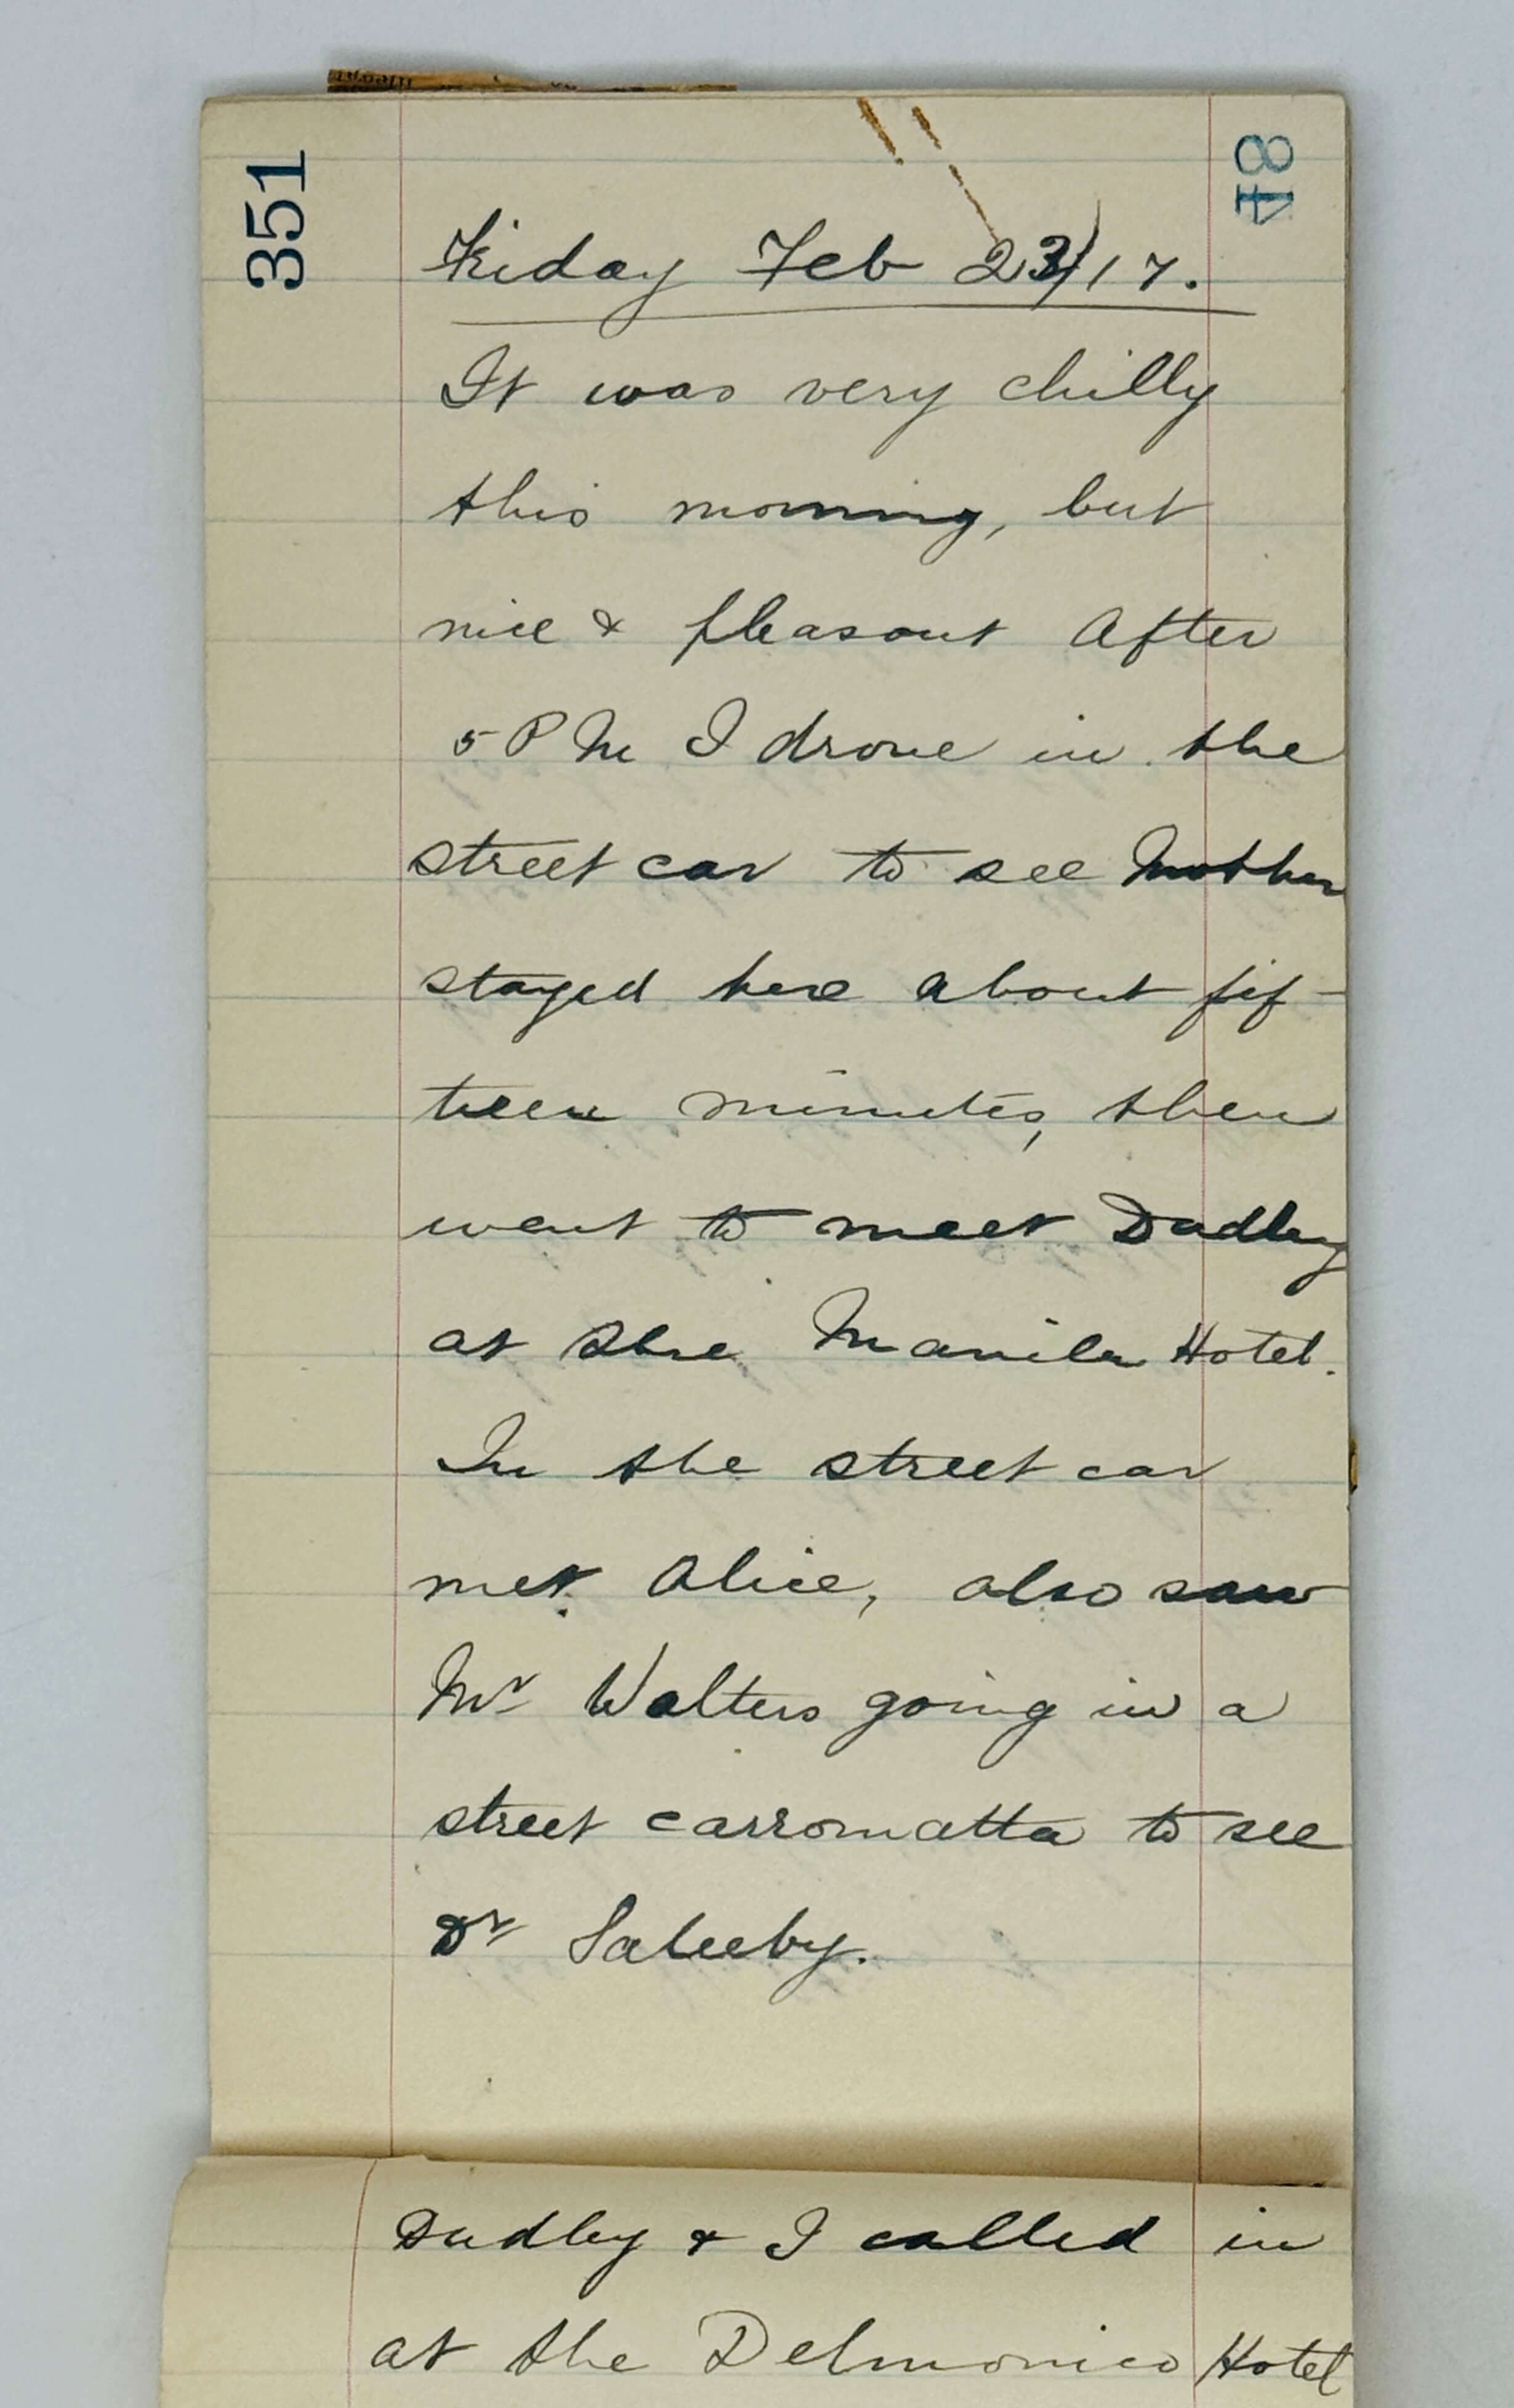 351
48
Friday Feb 23/17.
It was very chilly
this morning, but
nice & pleasant After
5 PM I drove in the
street car to see Mother
stayed here about fif-
teen minutes, then
went to meet Dudley
at the Manila Hotel.
In the street car
met Alice, also saw
Mr Walters going in a
street carromatta to see
Dr Saleeby.
Dudley & I called in
at the Delmonico Hotel